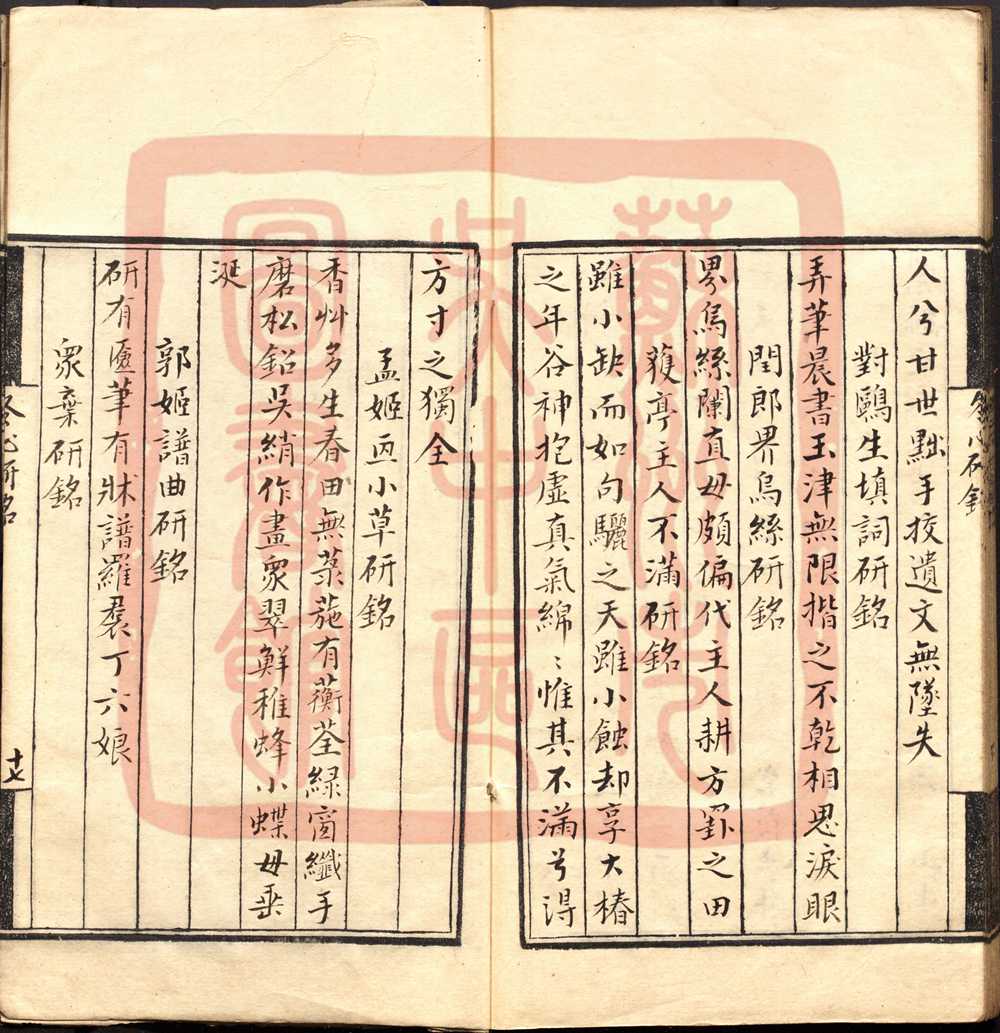 人兮甘世黜手挍遺文無墜失
對鷗生填詞研銘
弄筆晨書玉津無限揩之不乾相思淚眼
閏郎界烏絲研銘
界烏絲闌直毋頗偏代主人耕方罫之田
蒦亭主人不滿研銘
雖小缺而如句驪之天雖小蝕却享大椿
之年谷神抱虛真氣綿〻惟其不滿兮得
方寸之獨全
孟姬亟小草研銘
香艸多生春田無菉葹有蘅荃綠窗纖手
磨松鉛吳綃作畫眾翠鮮稚蜂小蝶毋垂
涎
郭姬譜曲研銘
研有匳筆有牀譜羅裠丁六娘
眾棄研銘
研銘
十七